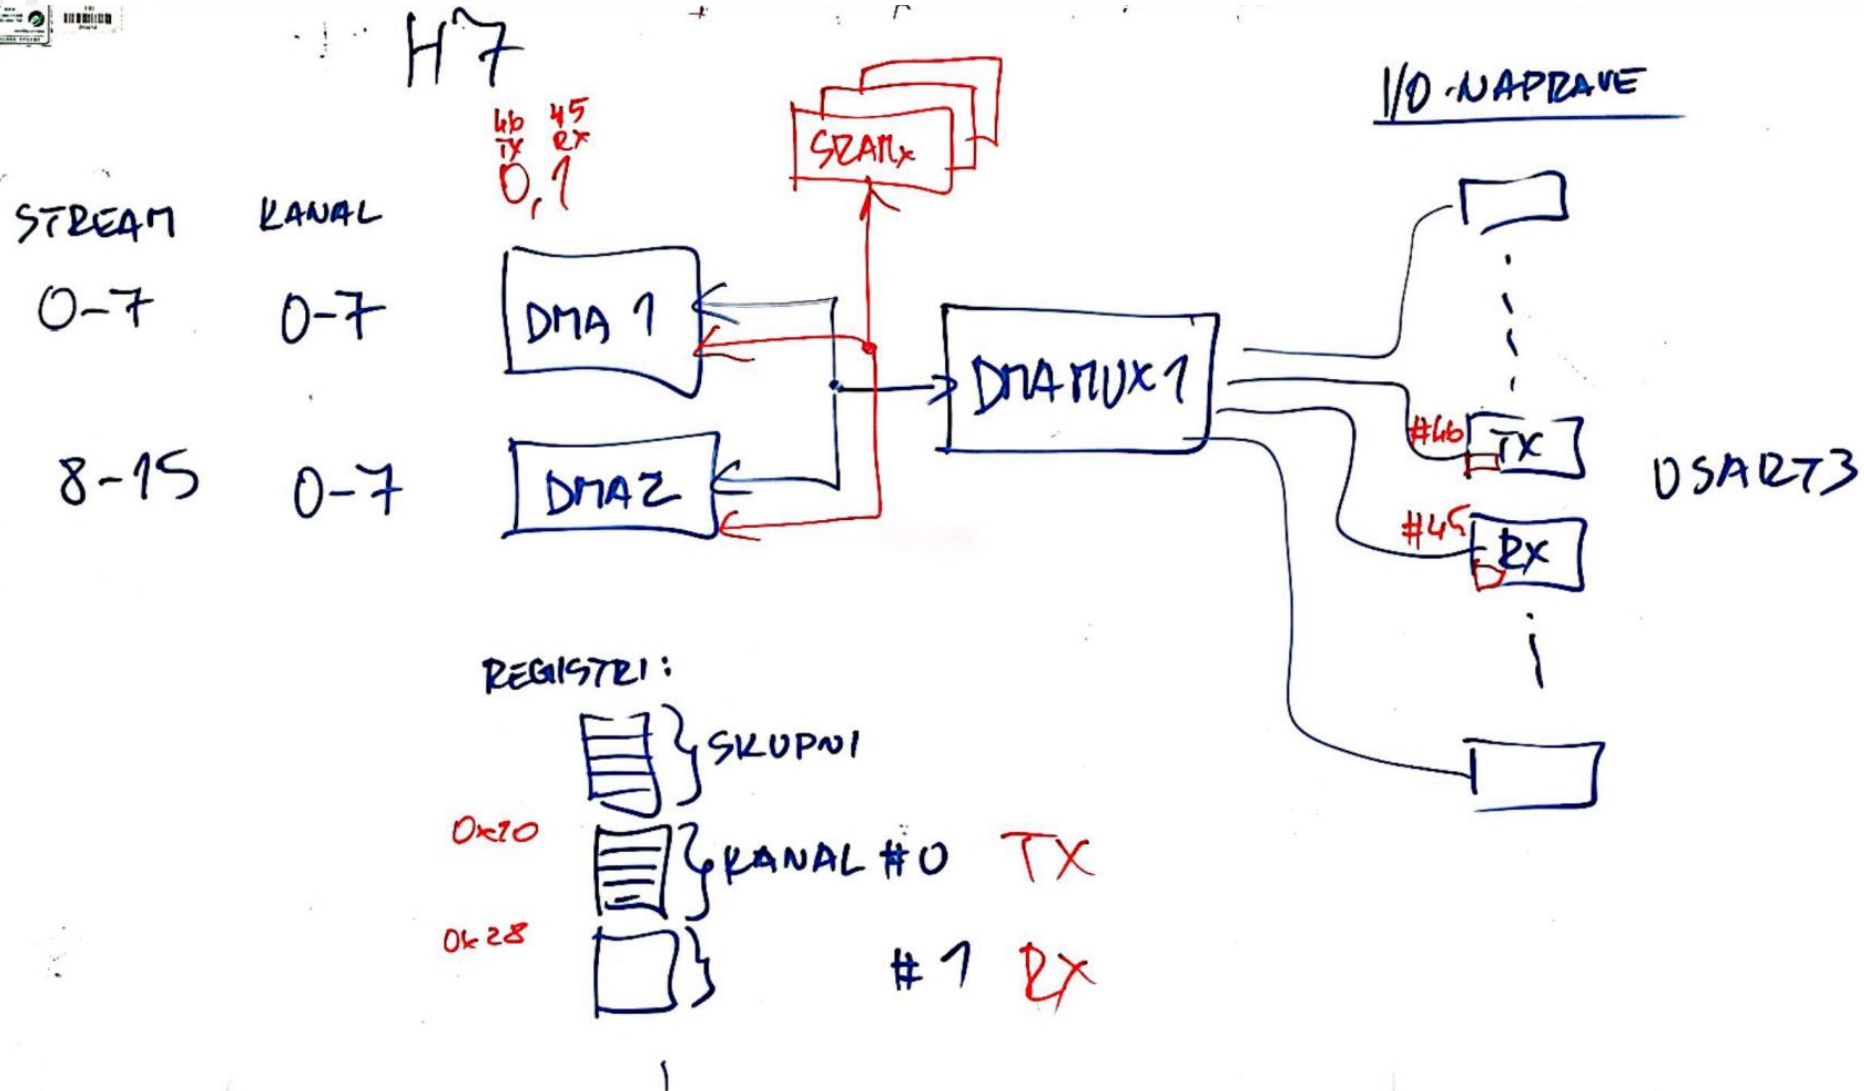 H7
I/O-NAPRAVE
46 45
TX RX
0,1
SRAMx
STREAM KANAL
0-7 0-7
DMA 1
DMAMUX1
8-15 0-7
DMA2
#46 TX
USART3
#45 RX
REGISTRI:
SKUPNI
0x10
KANAL #0 TX
0x28
#1 RX